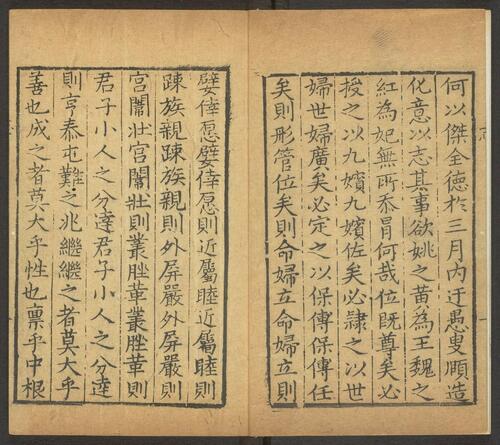 何以傑全德於三月內迂愚叟願造
化意以志其事欲姚之黄為王魏之
紅為妃無所忝冐何哉位既尊矣必
授之以九嬪九嬪佐矣必隷之以世
婦世婦廣矣必定之以保傅保傅任
矣則形管位矣則命婦立命婦立則
嬖倖愿嬖倖愿則近屬睦近屬睦則
踈族親踈族親則外屏嚴外屏嚴則
宫闈壯宫闈壯則叢脞革叢脞革則
君子小人之分達君子小人之分達
則亨泰屯難之兆繼繼之者莫大乎
善也成之者莫大乎性也禀乎中根